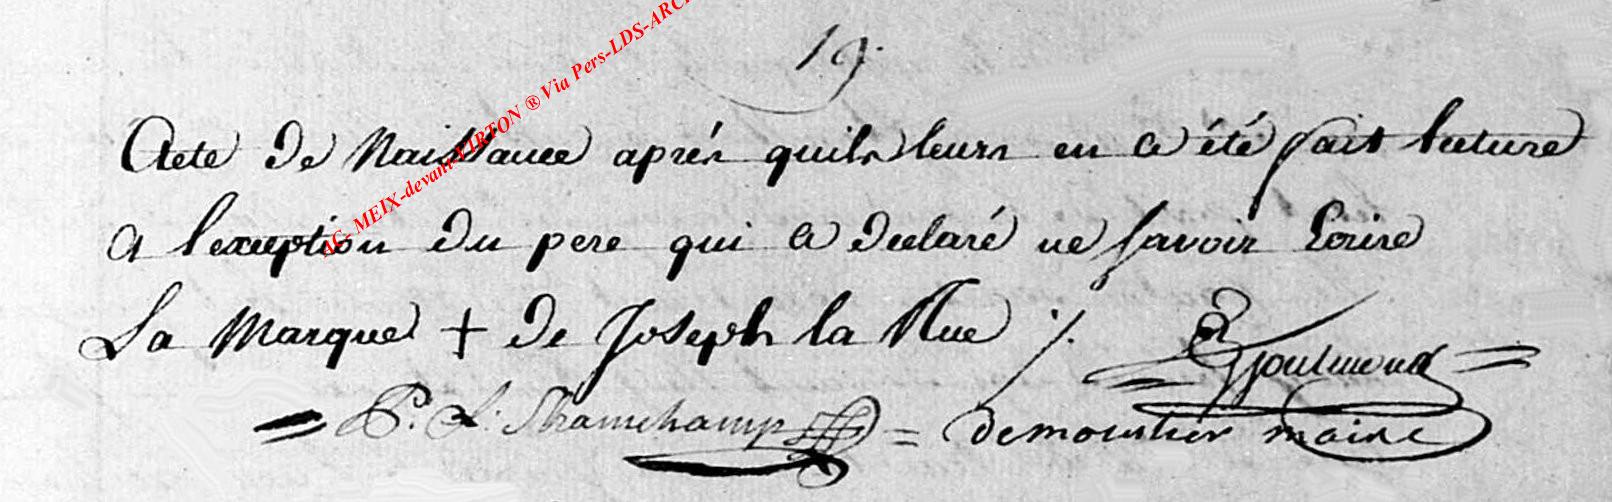 19.
AC- MEIX-devant-VIRTON ® Via Pers-LDS-ARC
Acte de Naissance aprés quils leurs en a été fait lecture
a lexception du pere qui a declaré ne savoir Ecrire
La Marque + de Joseph la Rue ./.
= P. L. = demoustier maire